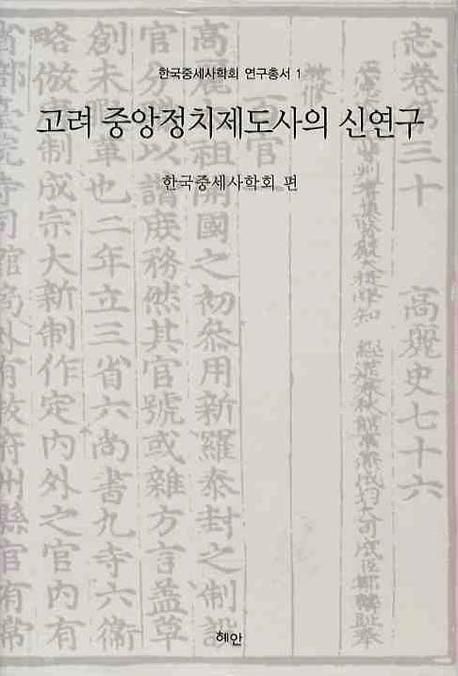 한국중세사학회 연구총서 1
고려 중앙정치제도사의 신연구
한국중세사학회 편
志卷第三十 高麗史七十六
高麗太祖開國之初叅用新羅泰封之制設
官分職以諧庶務然其官號或雜方言盖草
創未暇革也二年立三省六尚書九寺六衛
略倣唐制成宗大新制作定内外之官内有
省部臺院寺司館局外有牧府州縣官有常
혜안